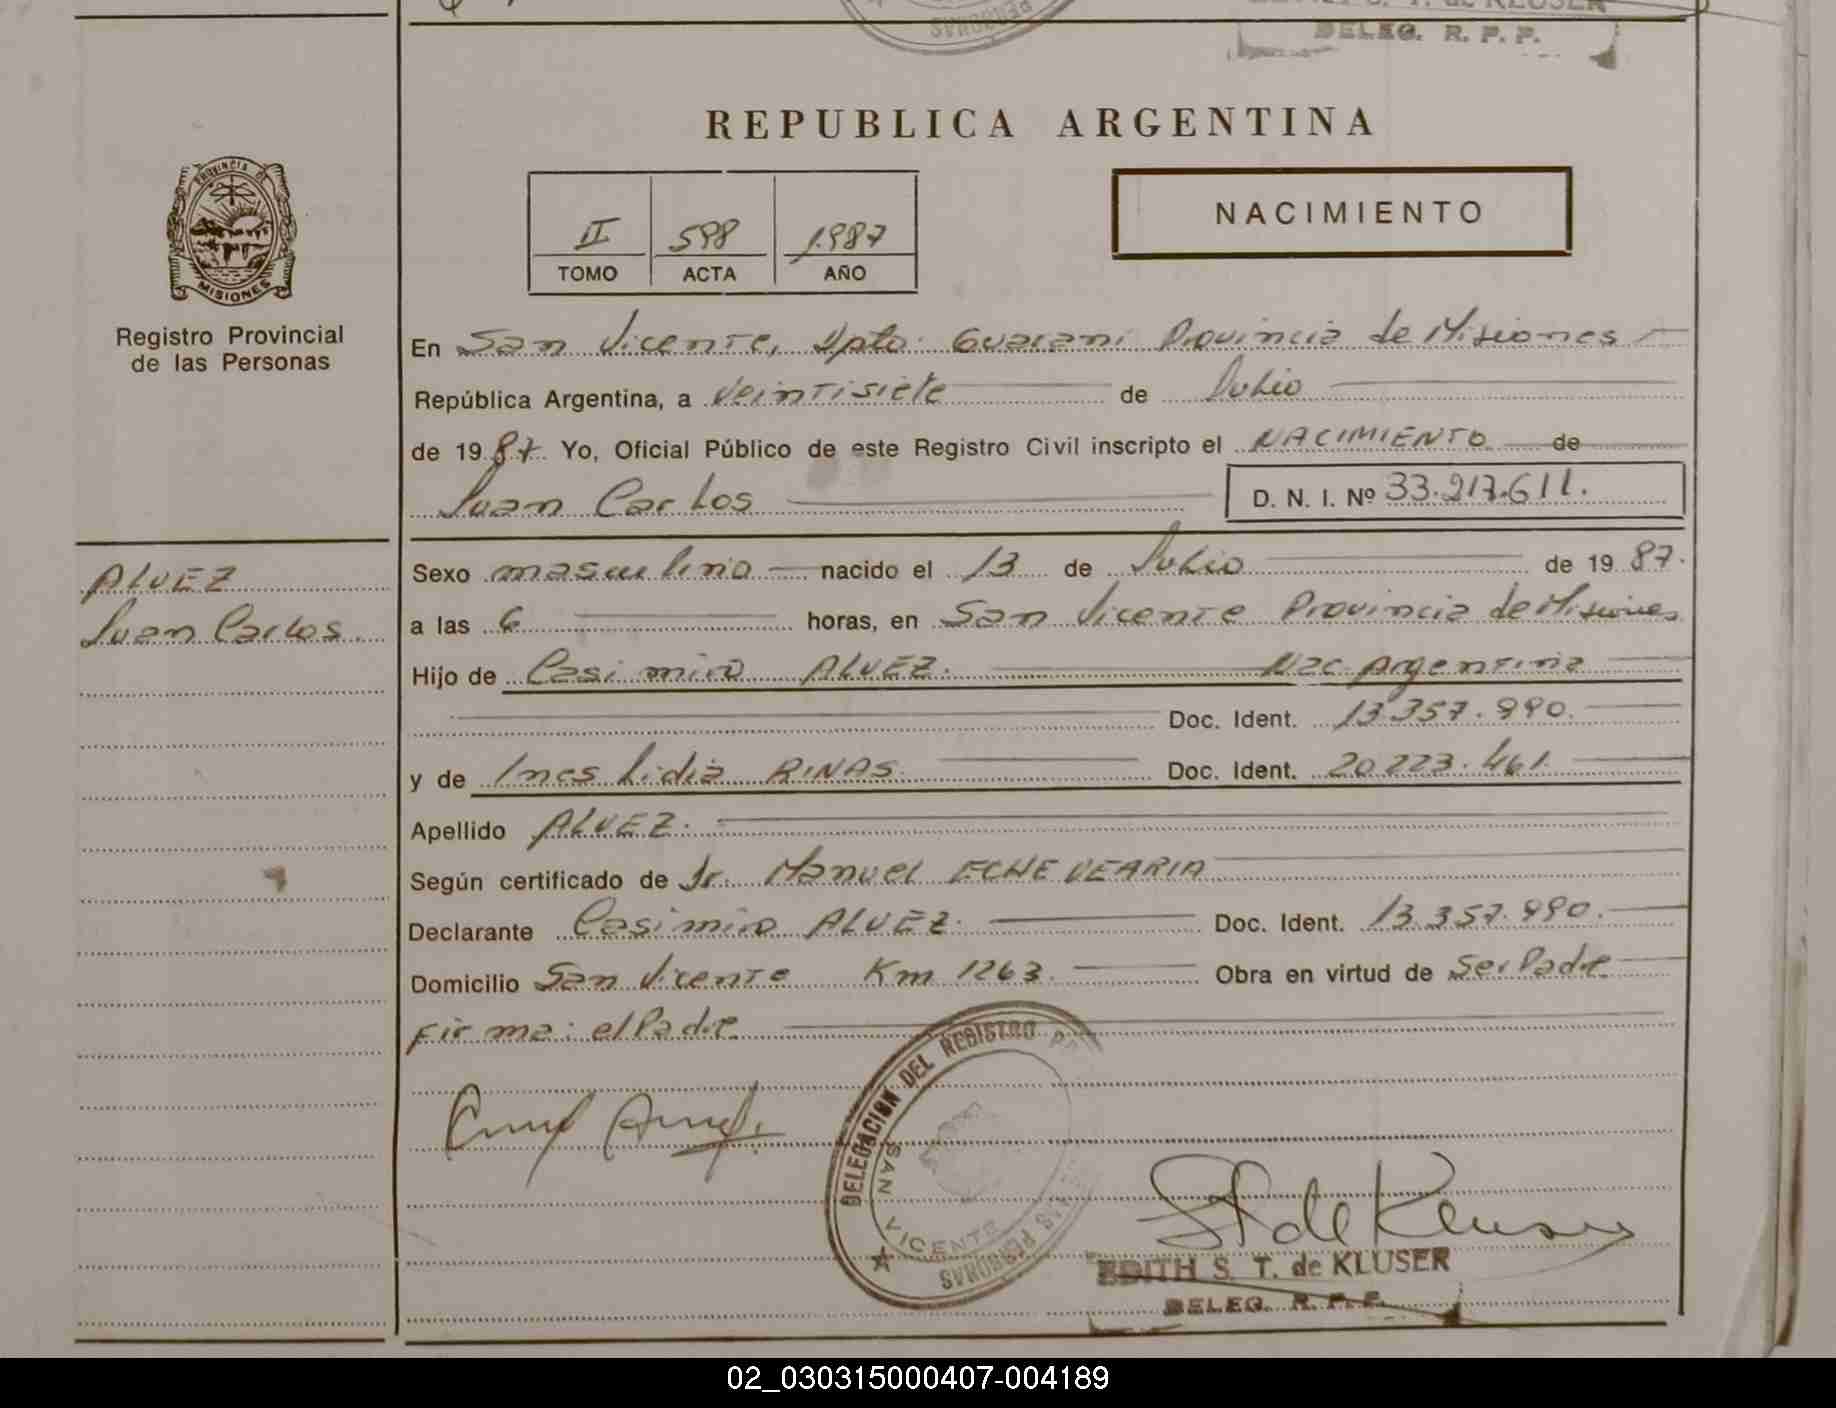 EDITH S. T. de KLUSER
PERSONAS
DELEG. R. P. P.
REPUBLICA ARGENTINA
PROVINCIA DE
MISIONES
Registro Provincial
de las Personas
II 598 1.987
TOMO ACTA AÑO
NACIMIENTO
En San Vicente, Dpto. Guarani Provincia de Misiones
República Argentina, a veintisiete de Julio
de 1987. Yo, Oficial Público de este Registro Civil inscripto el NACIMIENTO de
Juan Carlos D. N. I. Nº 33.217.611.
ALVEZ
Juan Carlos
Sexo masculino nacido el 13 de Julio de 1987.
a las 6 horas, en San Vicente Provincia de Misiones
Hijo de Casimiro ALVEZ. Nac. Argentina
Doc. Ident. 13.357.990.
y de Ines Lidia RINAS. Doc. Ident. 20.223.461.
Apellido ALVEZ.
Según certificado de Dr. Manuel ECHEVEARRIA
Declarante Casimiro ALVEZ. Doc. Ident. 13.357.990.
Domicilio San Vicente Km 1263. Obra en virtud de Ser Padre
Firma: el Padre
DELEGACION DEL REGISTRO
SAN VICENTE
LAS PERSONAS
ST de Kluser
EDITH S. T. de KLUSER
DELEG. R. P. P.
02_030315000407-004189